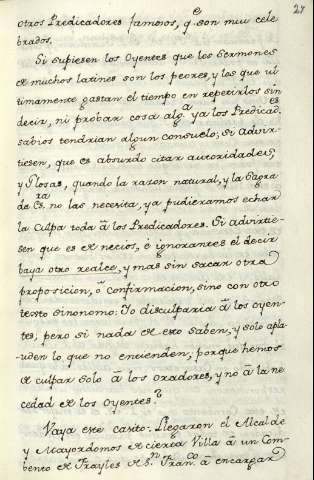 27
otros Predicadores famosos, qe son muy cele
brados.
Si supiesen los oyentes que los Sermones
de muchos latines son los peores, y los que ul
timamente gastan el tiempo en repetirlos sin
decir, ni probar cosa alga ya los Predicades
sabios tendrian algun consuelo; Si advir
tiesen, que es absurdo citar autoridades,
y Glosas, quando la razon natural, y la Sagra
da Esra no las necesita, ya pudieramos echar
la culpa toda â los Predicadores. Si advirtie-
sen que es de necios, è ignorantes el decir
baya otro realce, y mas sin sacar otra
proposicion, o confirmacion, sino con otro
texto sinonomo: Yo disculparia â los oyen-
tes, pero si nada de esto saben, y solo apla
uden lo que no entienden, porque hemos
de culpar solo â los oradores, y no â la ne
cedad de los oyentes?
Vaya este casito. Llegaron el Alcalde
y Mayordomos de cierta Villa â un Com-
bento de Frayles de Sn Franco â encargar